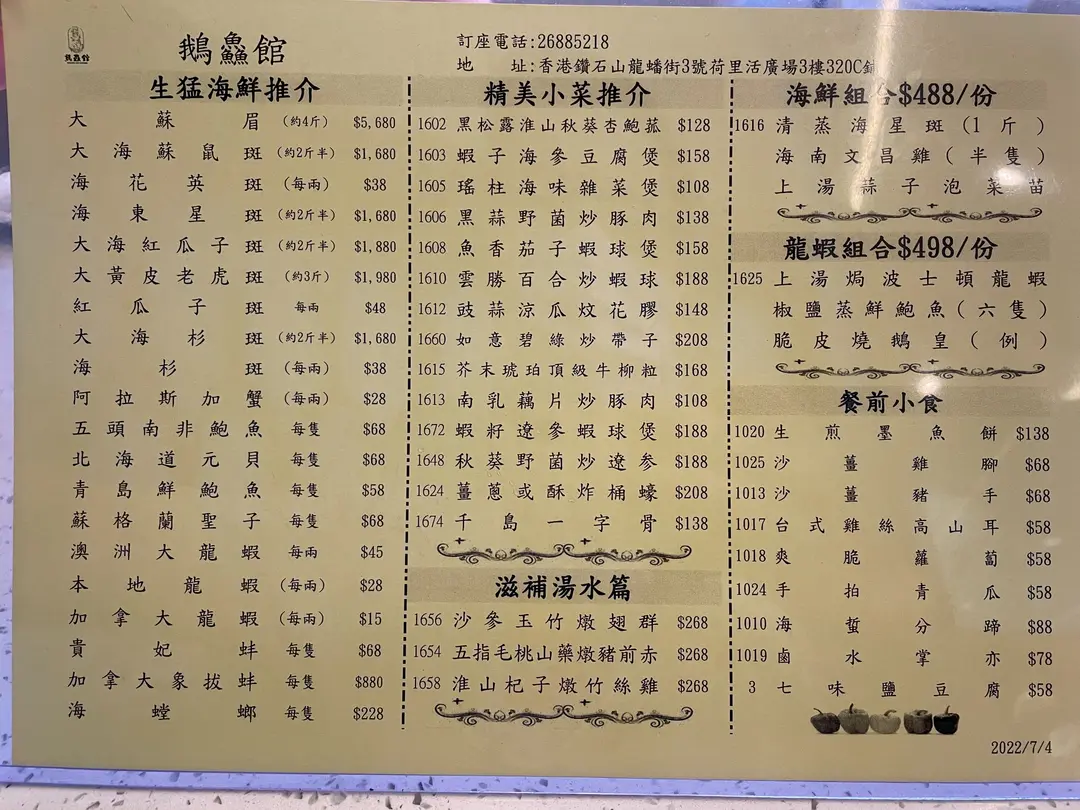 鵝鱻館
訂座電話:26885218
地 址:香港鑽石山龍蟠街3號荷里活廣場3樓320C鋪
生猛海鮮推介
大蘇眉 (約4斤) $5,680
大海蘇鼠斑 (約2斤半) $1,680
海花英斑 (每兩) $38
海東星斑 (約2斤半) $1,680
大海紅瓜子斑 (約2斤半) $1,880
大黃皮老虎斑 (約3斤) $1,980
紅瓜子斑 每兩 $48
大海杉斑 (約2斤半) $1,680
海杉斑 (每兩) $38
阿拉斯加蟹 (每兩) $28
五頭南非鮑魚 每隻 $68
北海道元貝 每隻 $68
青島鮮鮑魚 每隻 $58
蘇格蘭聖子 每隻 $68
澳洲大龍蝦 每兩 $45
本地龍蝦 (每兩) $28
加拿大龍蝦 (每兩) $15
貴妃蚌 每隻 $68
加拿大象拔蚌 每隻 $880
海螳螂 每隻 $228
精美小菜推介
1602 黑松露淮山秋葵杏鮑菰 $128
1603 蝦子海參豆腐煲 $158
1605 瑤柱海味雜菜煲 $108
1606 黑蒜野菌炒豚肉 $138
1608 魚香茄子蝦球煲 $158
1610 雲勝百合炒蝦球 $188
1612 豉蒜涼瓜炆花膠 $148
1660 如意碧綠炒帶子 $208
1615 芥末琥珀頂級牛柳粒 $168
1613 南乳藕片炒豚肉 $108
1672 蝦籽遼參蝦球煲 $188
1648 秋葵野菌炒遼参 $188
1624 薑蔥或酥炸桶蠔 $208
1674 千島一字骨 $138
滋補湯水篇
1656 沙參玉竹燉翅群 $268
1654 五指毛桃山藥燉豬前赤 $268
1658 淮山杞子燉竹絲雞 $268
海鮮組合$488/份
1616 清蒸海星斑(1斤)
海南文昌雞(半隻)
上湯蒜子泡菜苗
龍蝦組合$498/份
1625 上湯焗波士頓龍蝦
椒鹽蒸鮮鮑魚(六隻)
脆皮燒鵝皇(例)
餐前小食
1020 生煎墨魚餅 $138
1025 沙薑雞腳 $68
1013 沙薑豬手 $68
1017 台式雞絲高山耳 $58
1018 爽脆蘿蔔 $58
1024 手拍青瓜 $58
1010 海蜇分蹄 $88
1019 鹵水掌亦 $78
3 七味鹽豆腐 $58
2022/7/4